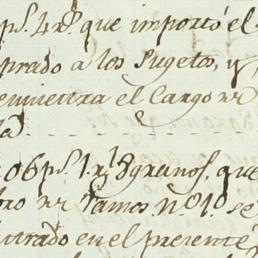 p.s 4 r.s que importó el
prado a los Sugetos, y
emuestra el Cargo nº
la
06 p.s 1 r.l 8 granos. que
bro nº Ramos. nº 1º se
ntrado en el presente